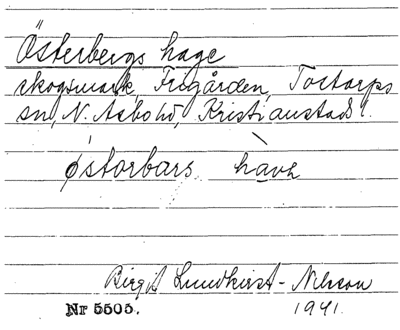 Österbergs hage
skogsmark, Frigården, Tostarps
sn, N. Åsbo hd, Kristianstads l.
østorbars havh
Birgit Lundkvist-Nilsson
Nr 5505. 1941.